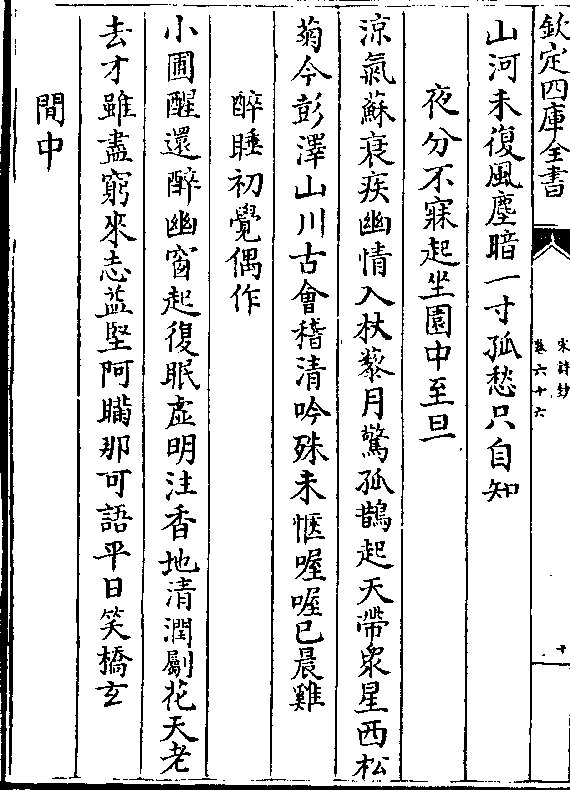 欽定四庫全書
宋詩鈔
卷六十六
十
山河未復風塵暗一寸孤愁只自知
夜分不寐起坐園中至旦
涼氣蘇衰疾幽情入杖藜月驚孤鵲起天帶衆星西松
菊今彭澤山川古會稽清吟殊未愜喔喔已晨雞
醉睡初覺偶作
小圃醒還醉幽窗起復眠虛明注香地清潤劚花天老
去才雖盡窮來志益堅阿瞞那可語平日笑橋玄
間中